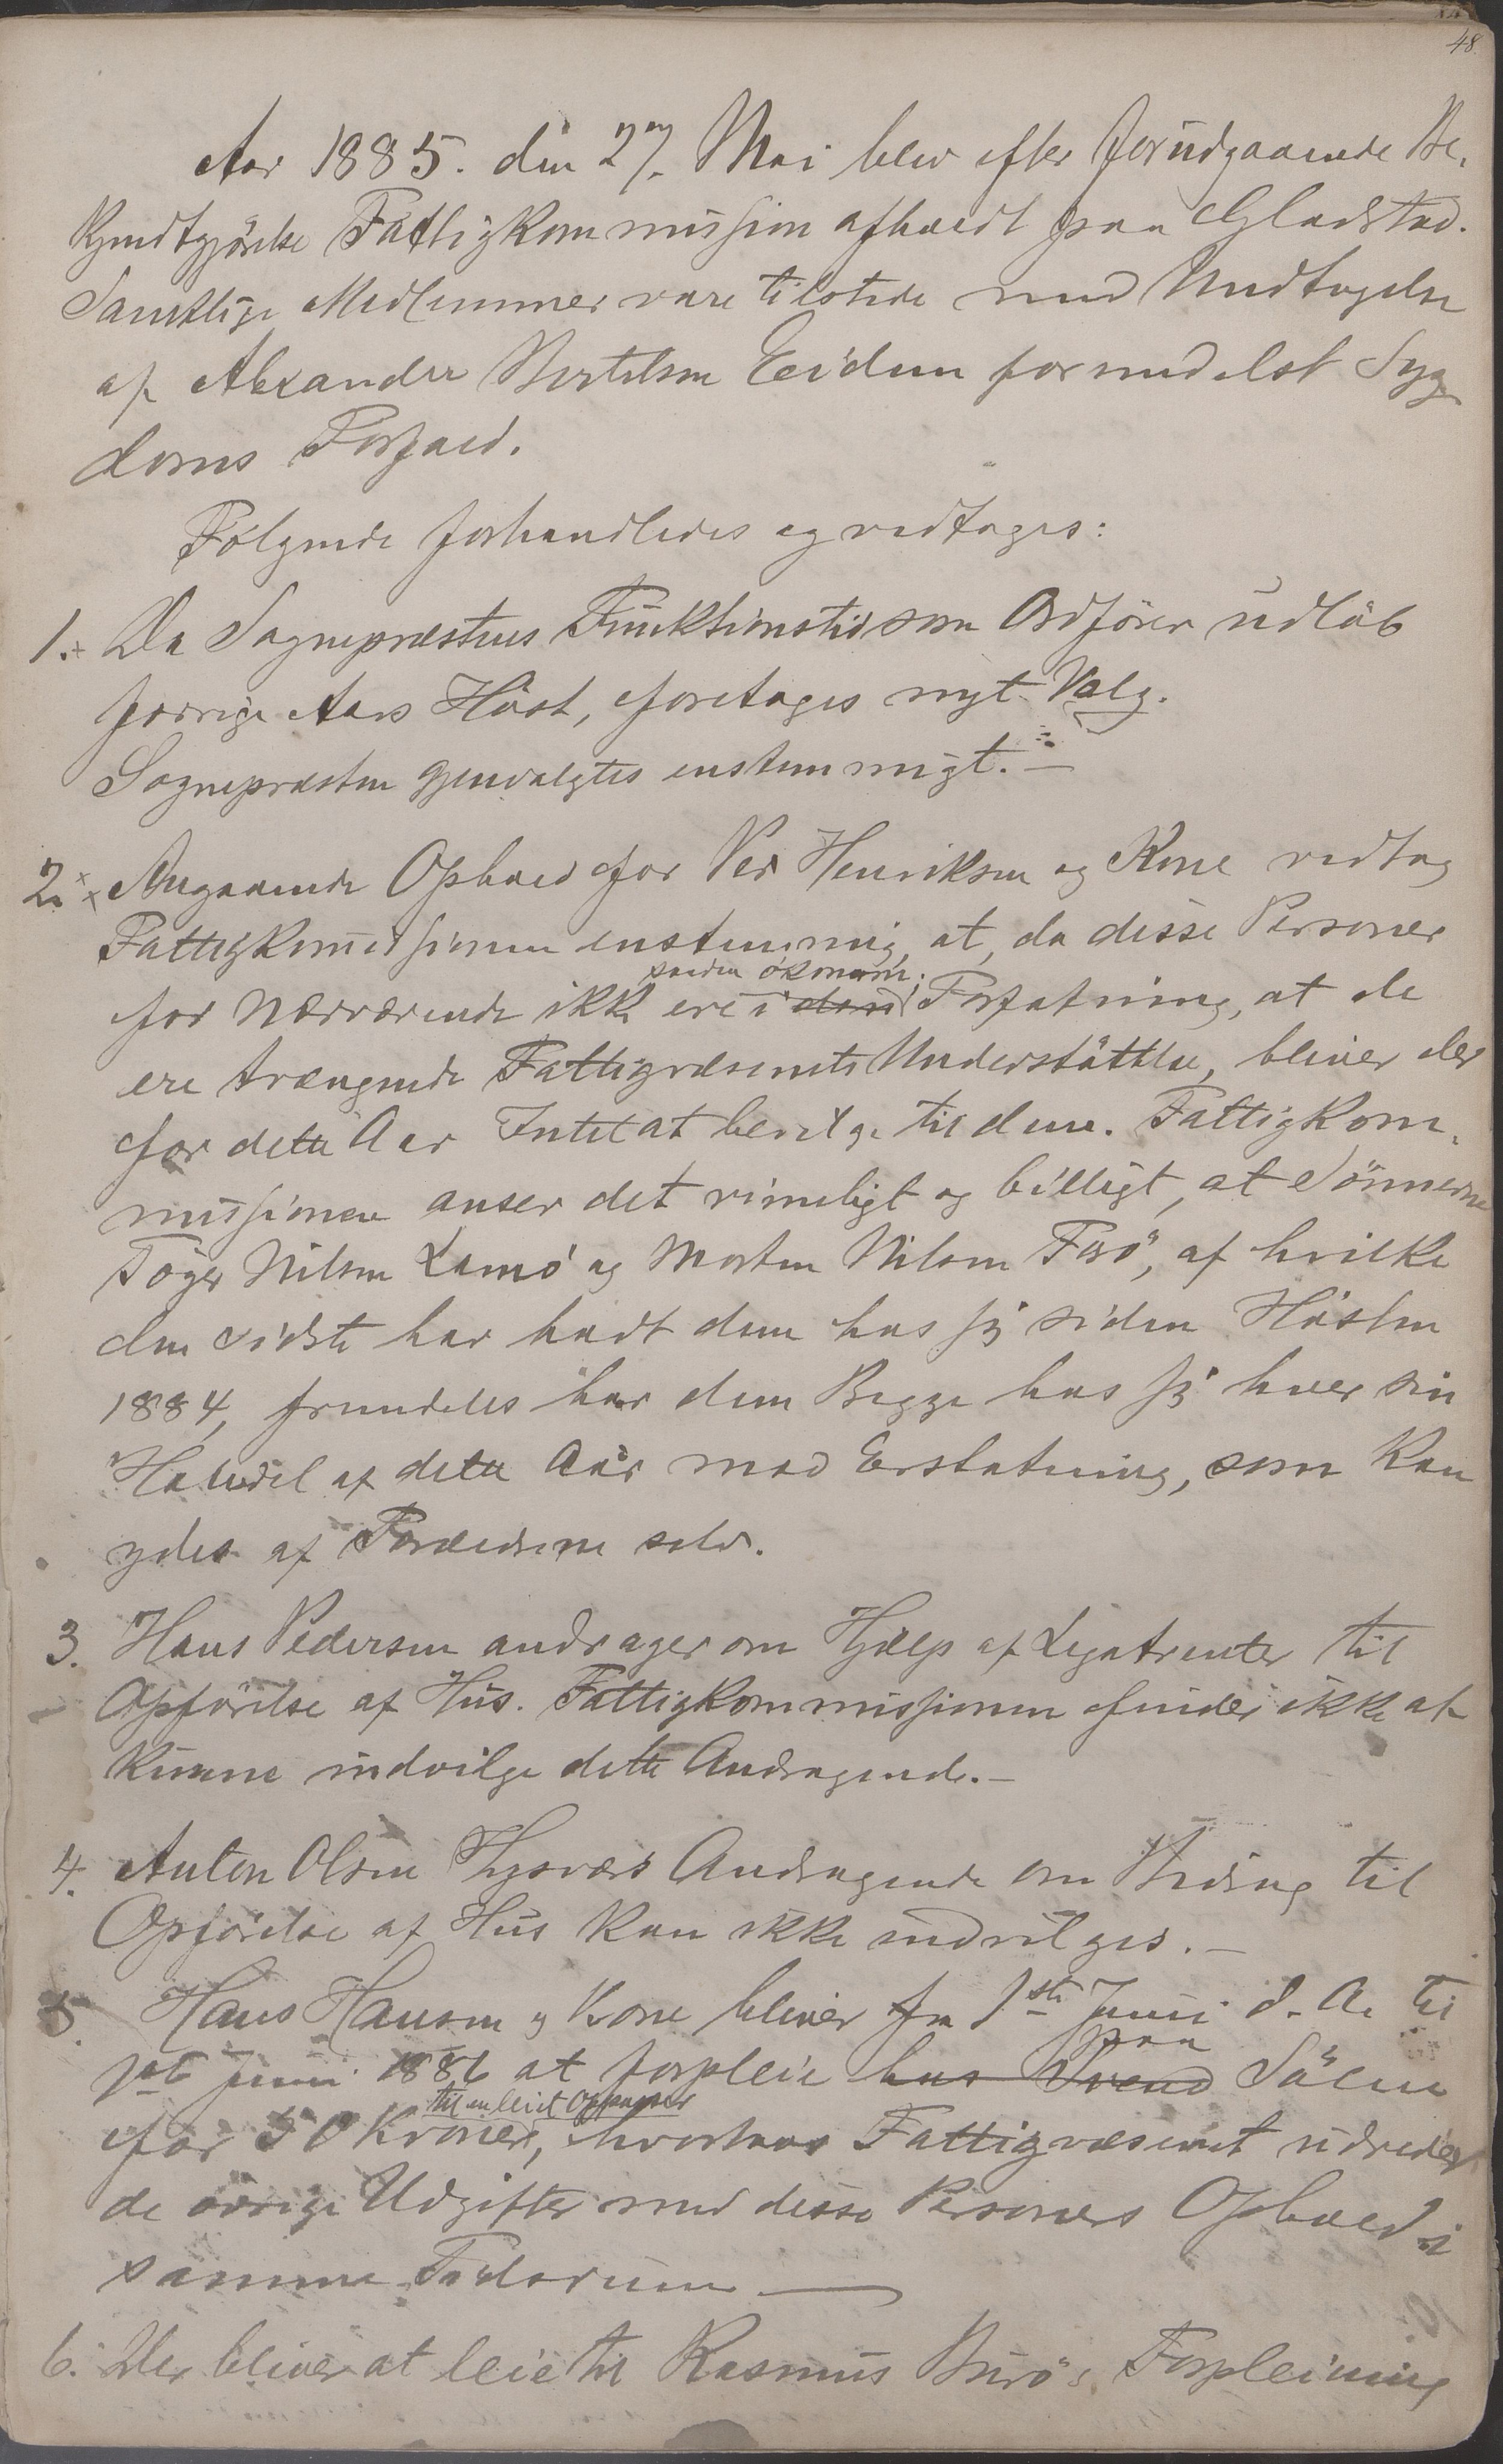 48.
Aar 1885. den 27. Mai blev efter forudgaaende Be-
kjendtgjörelse Fattigkommission afholdt paa Gladstad.
Samtlige Medlemmer vare tilstede med Undtagelse
af Alexander Bertelsen Eidem formedelst Syg-
doms Forfald.
Følgende forhandledes og vedtoges:
1. Da Sognepræstens Funktionstid som Ordförer udløb
forrige Aars Höst, foretoges nyt Valg.
Sognepræsten gjenvalgtes enstemmigt. —
2. Angaaende Ophold for Per Henriksen og Kone vedtog
Fattigkommissionen enstemmig, at, da disse Personer
saadan ökonom.
for Nærværende ikke ere i den Forfatning, at de
ere trængende Fattigvæsenets Understöttelse, bliver der
for dette Aar Intet at bevilge til dem. Fattigkom-
missionen anser det rimeligt og billigt, at Sönnerne
Töger Nilsen Lamö og Morten Nilsen Flesö, af hvilke
den sidste har havt dem hos sig siden Hösten
1884, fremdeles har dem Begge hos sig hver sin
Halvdel af dette Aar mod Erstatning, som kan
ydes af Forældrene selv.
3. Hans Pedersen andrager om Hjælp af Legatrenter til
Opförelse af Hus. Fattigkommissionen finder ikke at
kunne indvilge dette Andragende. —
4. Anton Olsen Hysværs Andragende om Bidrag til
Opförelse af Hus kan ikke indvilges. —
5. Hans Hansen og Kone bliver fra 1ste Juni d. A. til
paa
1ste Juni 1886 at forpleie hos Svend Sölen
til en leiet Opasser
for 50 Kroner, hvorhos Fattigvæsenet udreder
de övrige Udgifter med disse Personers Ophold i
samme Tidsrum —
6. Der bliver at leie til Rasmus Burö's Forpleining